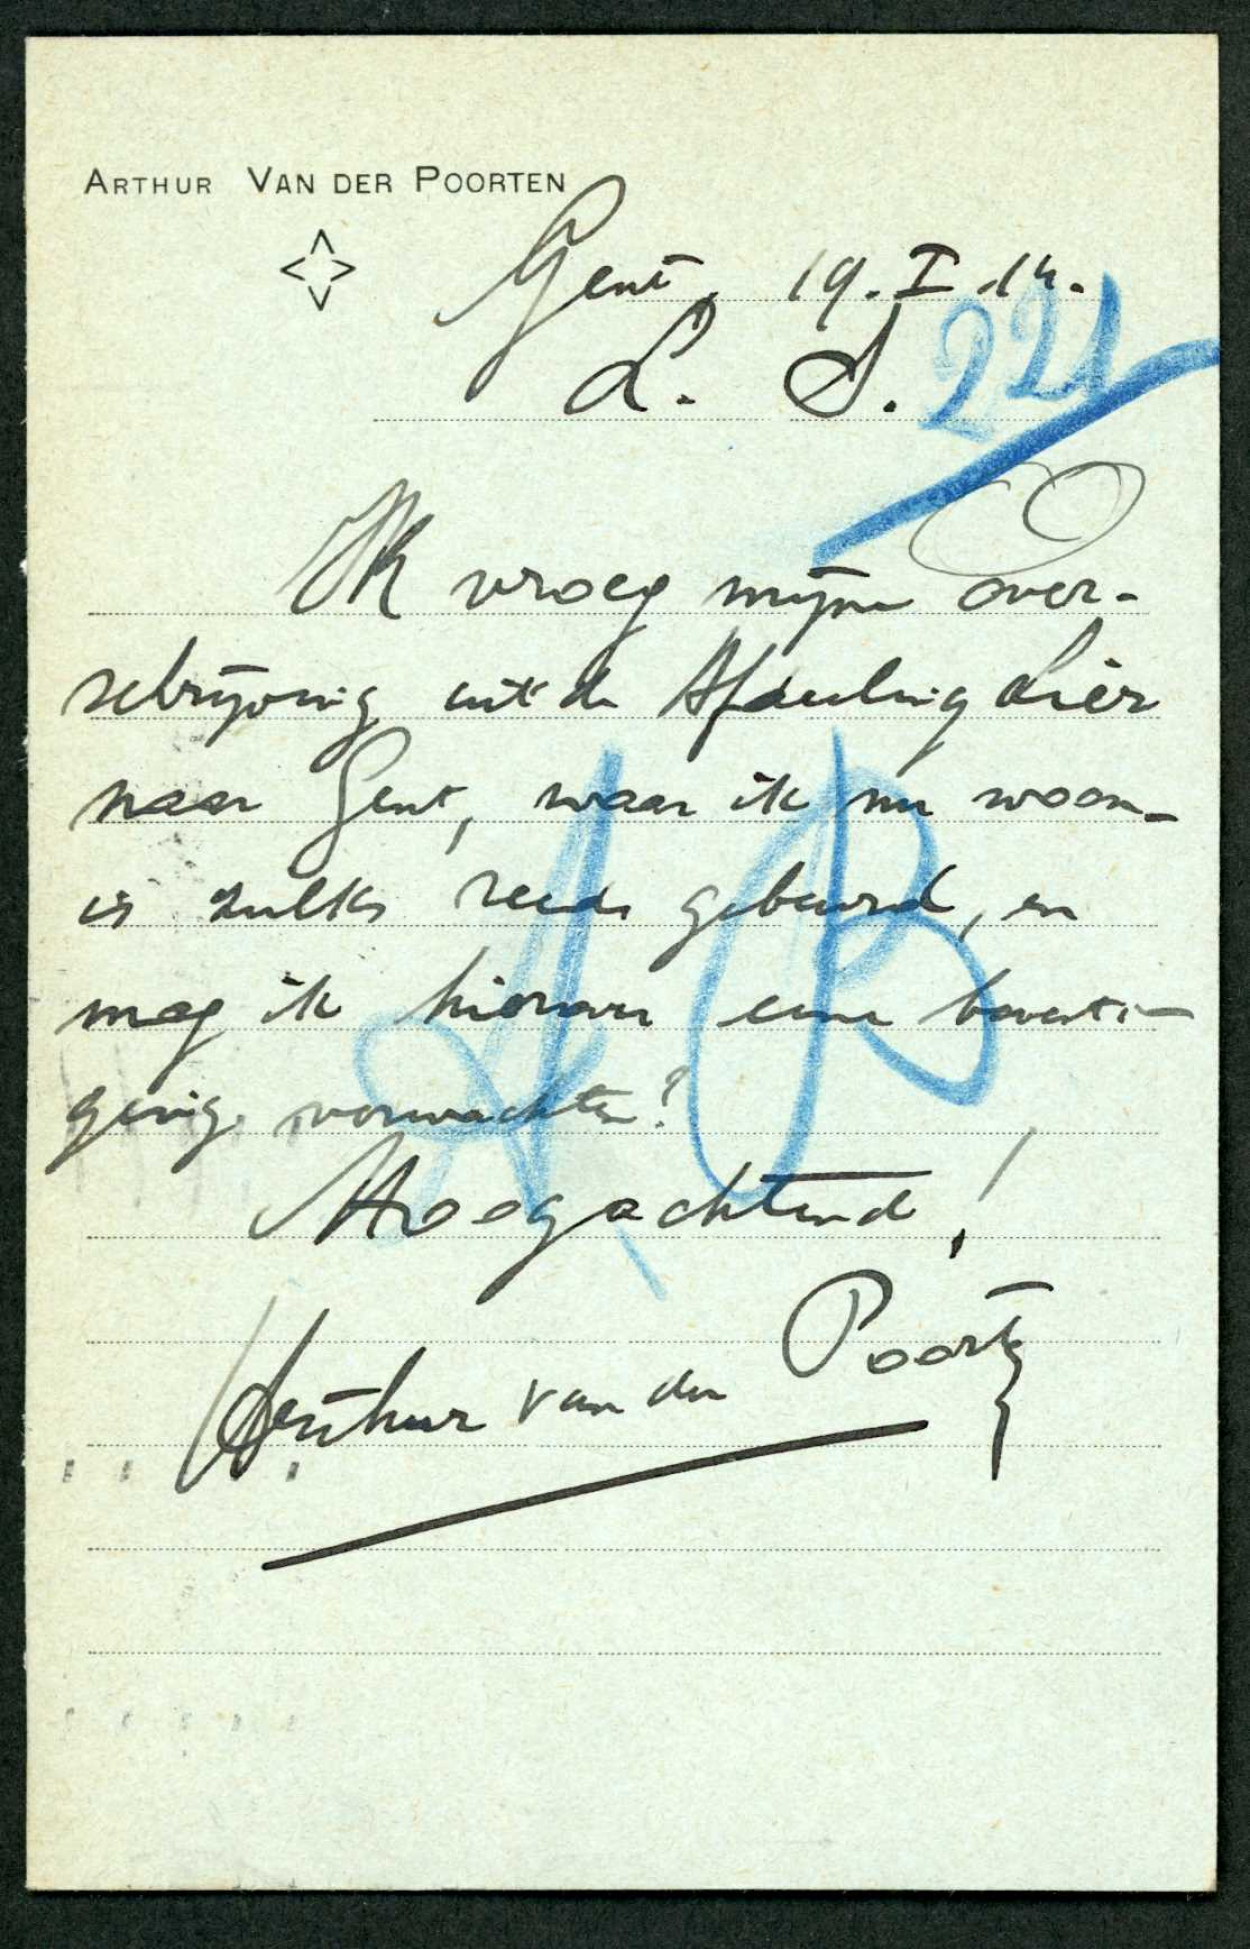 ARTHUR VAN DER POORTEN
Gent, 19.I.14.
L. S.
221
Ik vroeg mijne over-
schrijving uit de Afdeeling Lier
naar Gent, waar ik nu woon_
is zulks reeds gebeurd, en
mag ik hiervan eene bevesti-
ging verwachten?
Hoogachtend,
Arthur van der Poorten